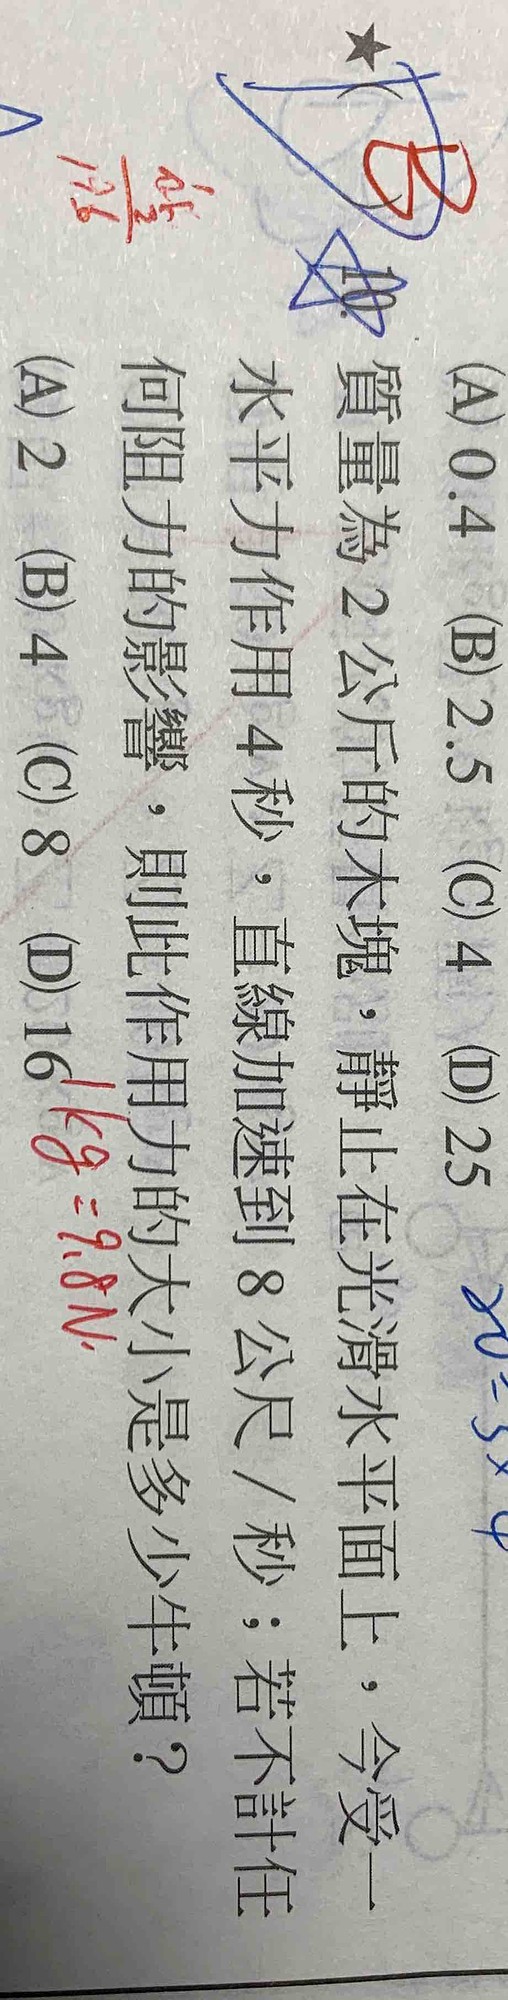 (A) 0.4 (B) 2.5 (C) 4 (D) 25
20=5×4
★( B ) 10. 質量為 2 公斤的木塊，靜止在光滑水平面上，今受一
水平力作用 4 秒，直線加速到 8 公尺／秒；若不計任
何阻力的影響，則此作用力的大小是多少牛頓？
(A) 2 (B) 4 (C) 8 (D) 16
1kg=9.8N.